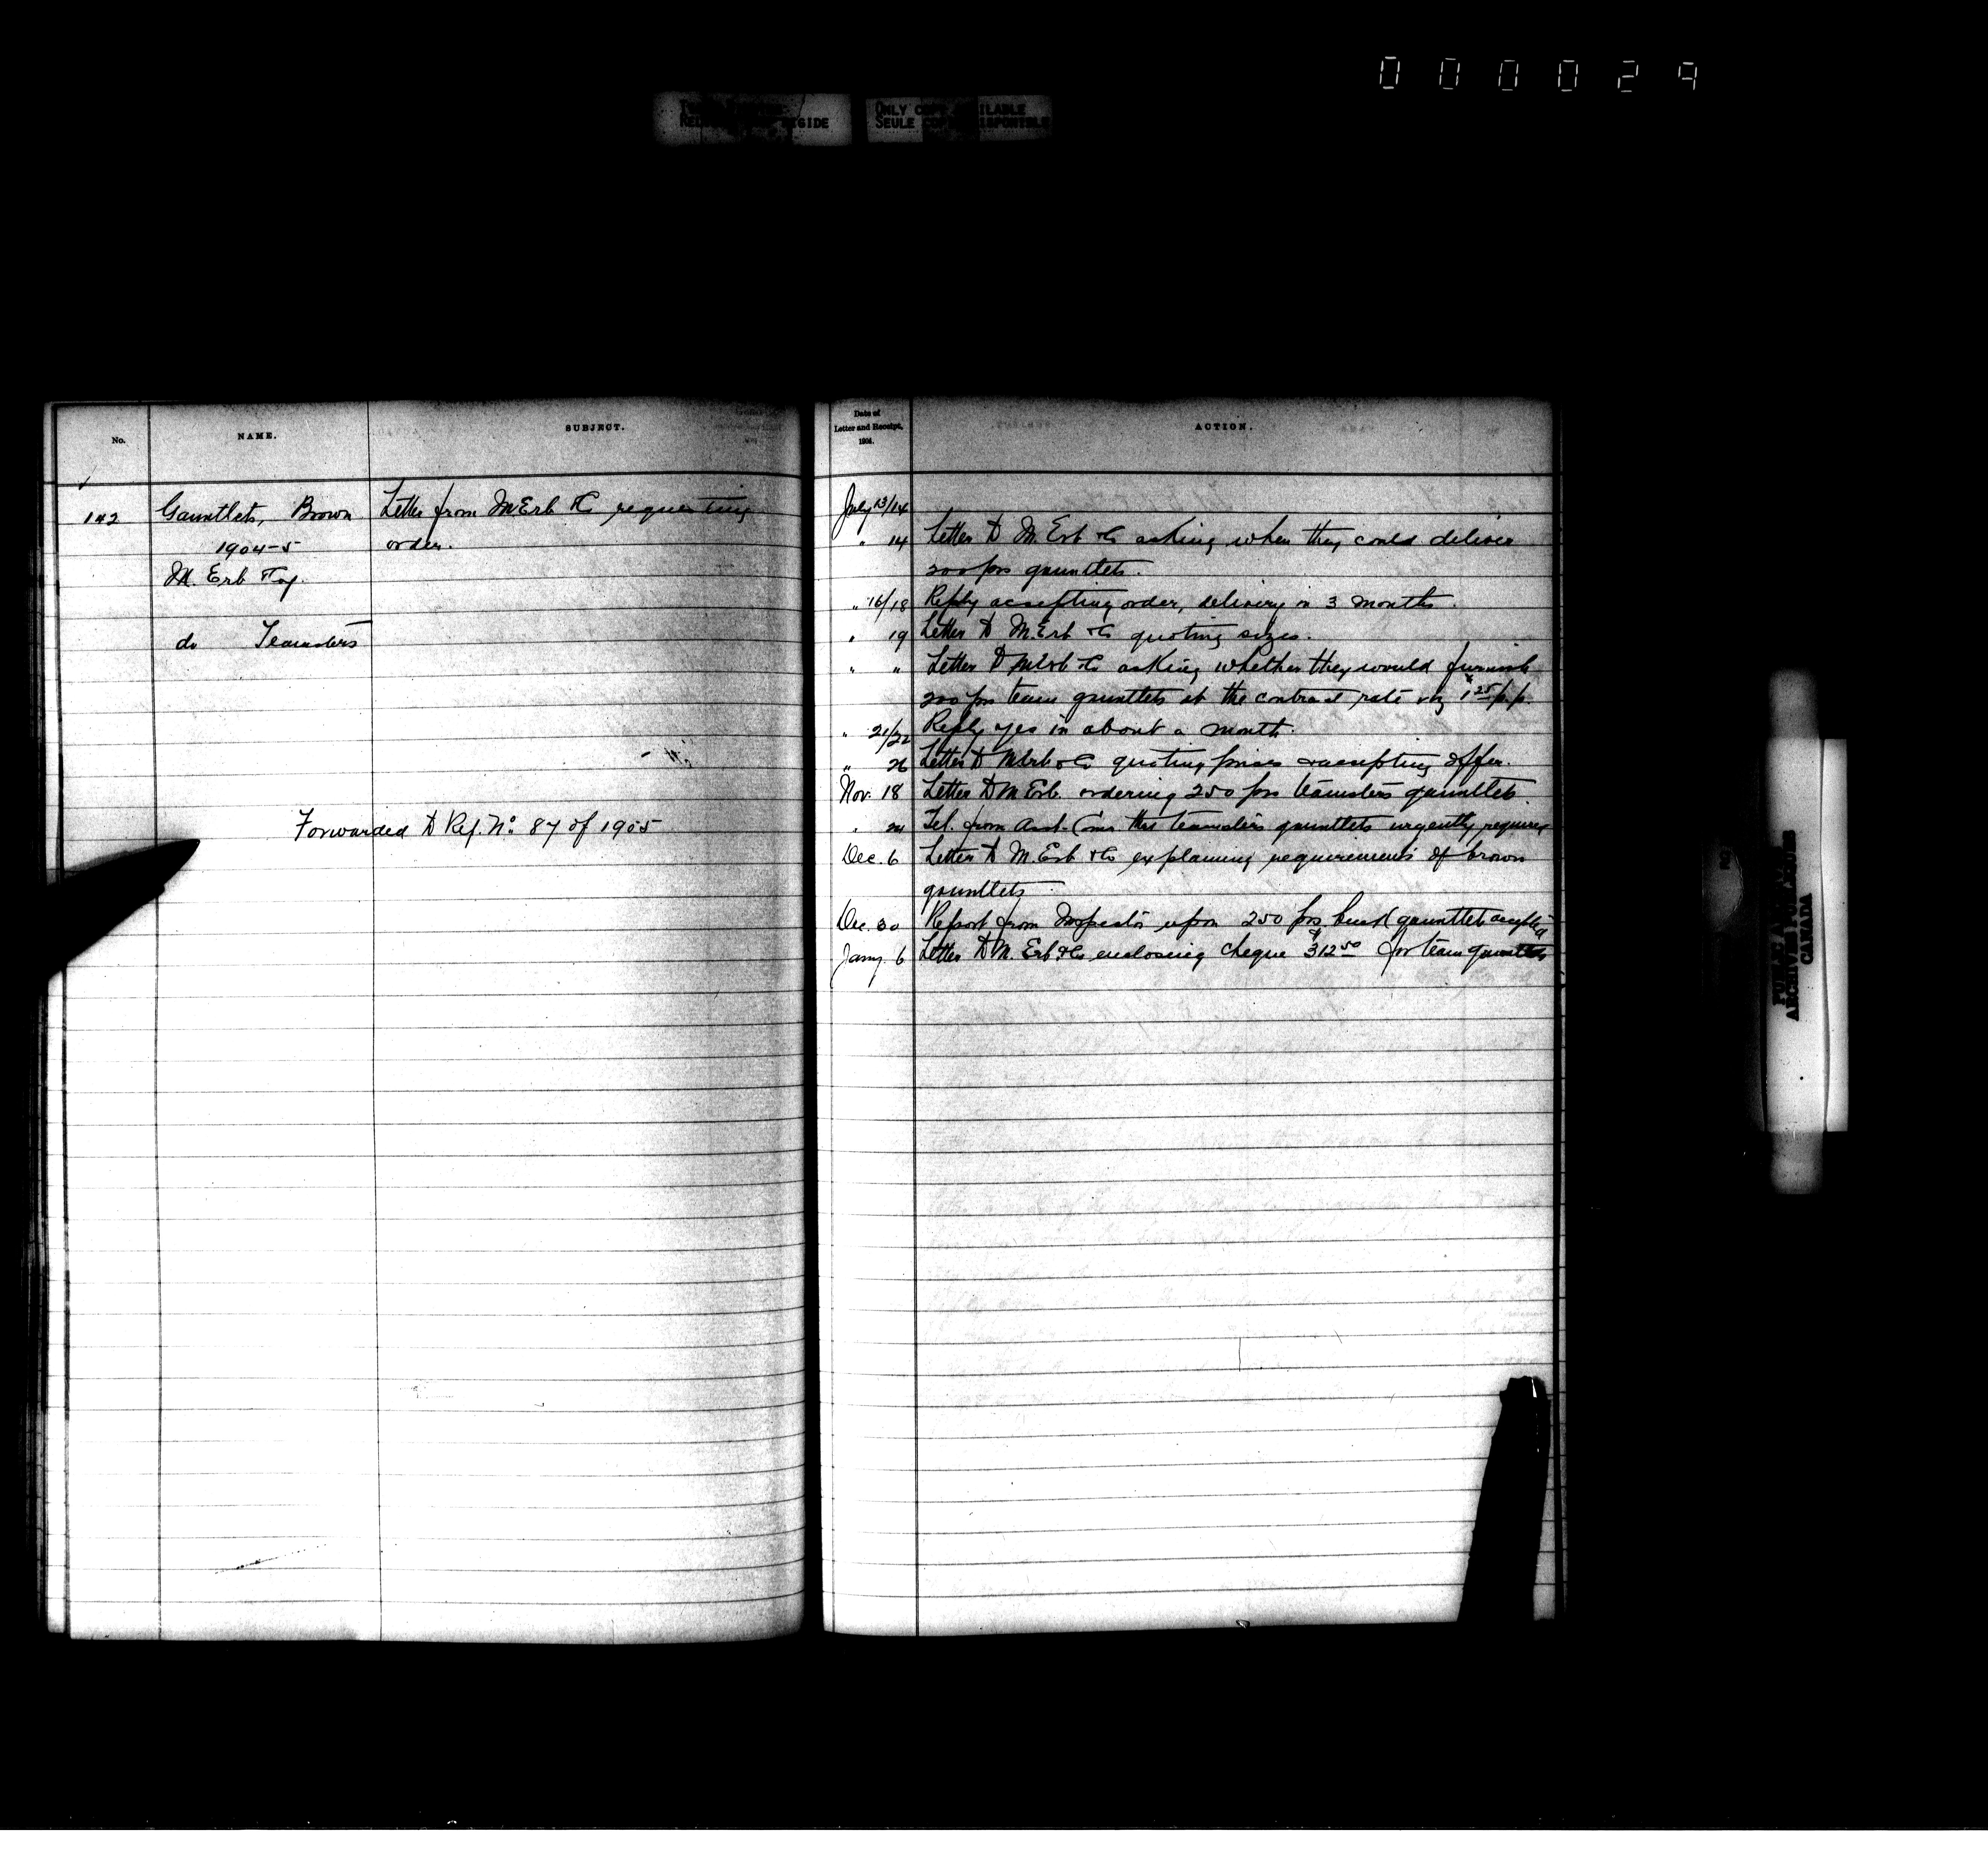 000029
ONLY COPY AVAILABLE
SEULE COPIE DISPONIBLE
No.
NAME.
SUBJECT.
142
Gauntlets, Brown
1904-5
M. Erb & Coy.
do Teamsters
Letter from M Erb & Co requesting
order.
Forwarded to Ref. No. 87 of 1905
Date of
Letter and Receipt,
1904.
ACTION.
July 13/14
" 14 Letter to M. Erb & Co asking when they could deliver
200 prs gauntlets.
" 16/18 Reply accepting order, delivery in 3 months.
" 19 Letter to M. Erb & Co quoting sizes.
" " Letter to M Erb & Co asking whether they would furnish
200 prs team gauntlets at the contract rate viz $1.25 p.p.
" 21/22 Reply yes in about a month.
" 26 Letter to M Erb & Co quoting prices & accepting offer.
Nov. 18 Letter to M Erb. ordering 250 prs teamsters gauntlets.
" 24 Tel. from Asst. Comr. teamsters gauntlets urgently required
Dec. 6 Letter to M. Erb & Co explaining requirements of brown
gauntlets
Dec. 30 Report from Inspector upon 250 prs gauntlets accepted
Jany. 6 Letter to M. Erb & Co enclosing cheque $312.50 for team gauntlets
PUBLIC ARCHIVES
ARCHIVES PUBLIQUES
CANADA